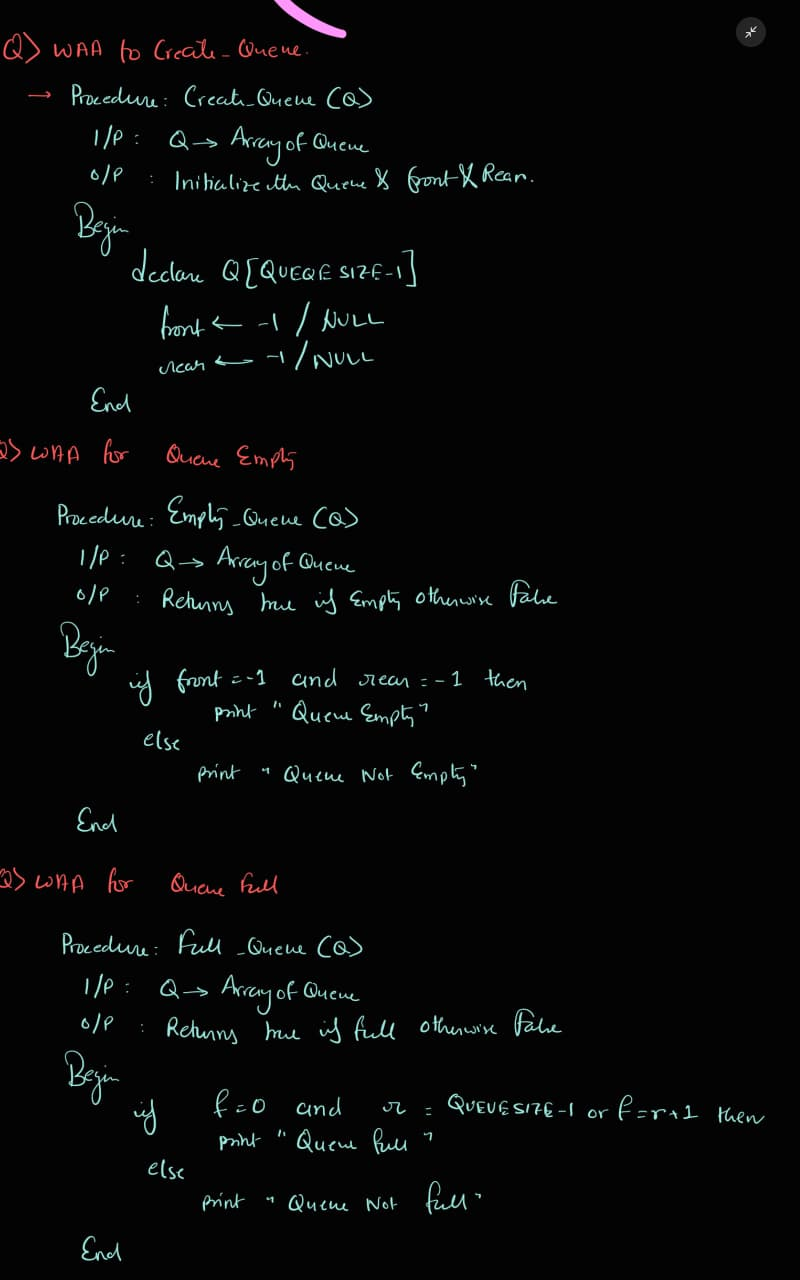 Q> WAA to Create_Queue.
→ Procedure: Create_Queue (Q)
I/P : Q → Array of Queue
O/P : Initialize the Queue & front & Rear.
Begin
declare Q[QUEQE SIZE-1]
front ← -1 / NULL
rear ← -1 / NULL
End
Q> WAA for Queue Empty
Procedure: Empty_Queue (Q)
I/P : Q → Array of Queue
O/P : Returns true if Empty otherwise False
Begin
if front = -1 and rear = -1 then
print "Queue Empty"
else
print "Queue Not Empty"
End
Q> WAA for Queue Full
Procedure: Full_Queue (Q)
I/P : Q → Array of Queue
O/P : Returns true if full otherwise False
Begin
if f=0 and r = QUEUESIZE-1 or f=r+1 then
print "Queue full"
else
print "Queue Not full"
End